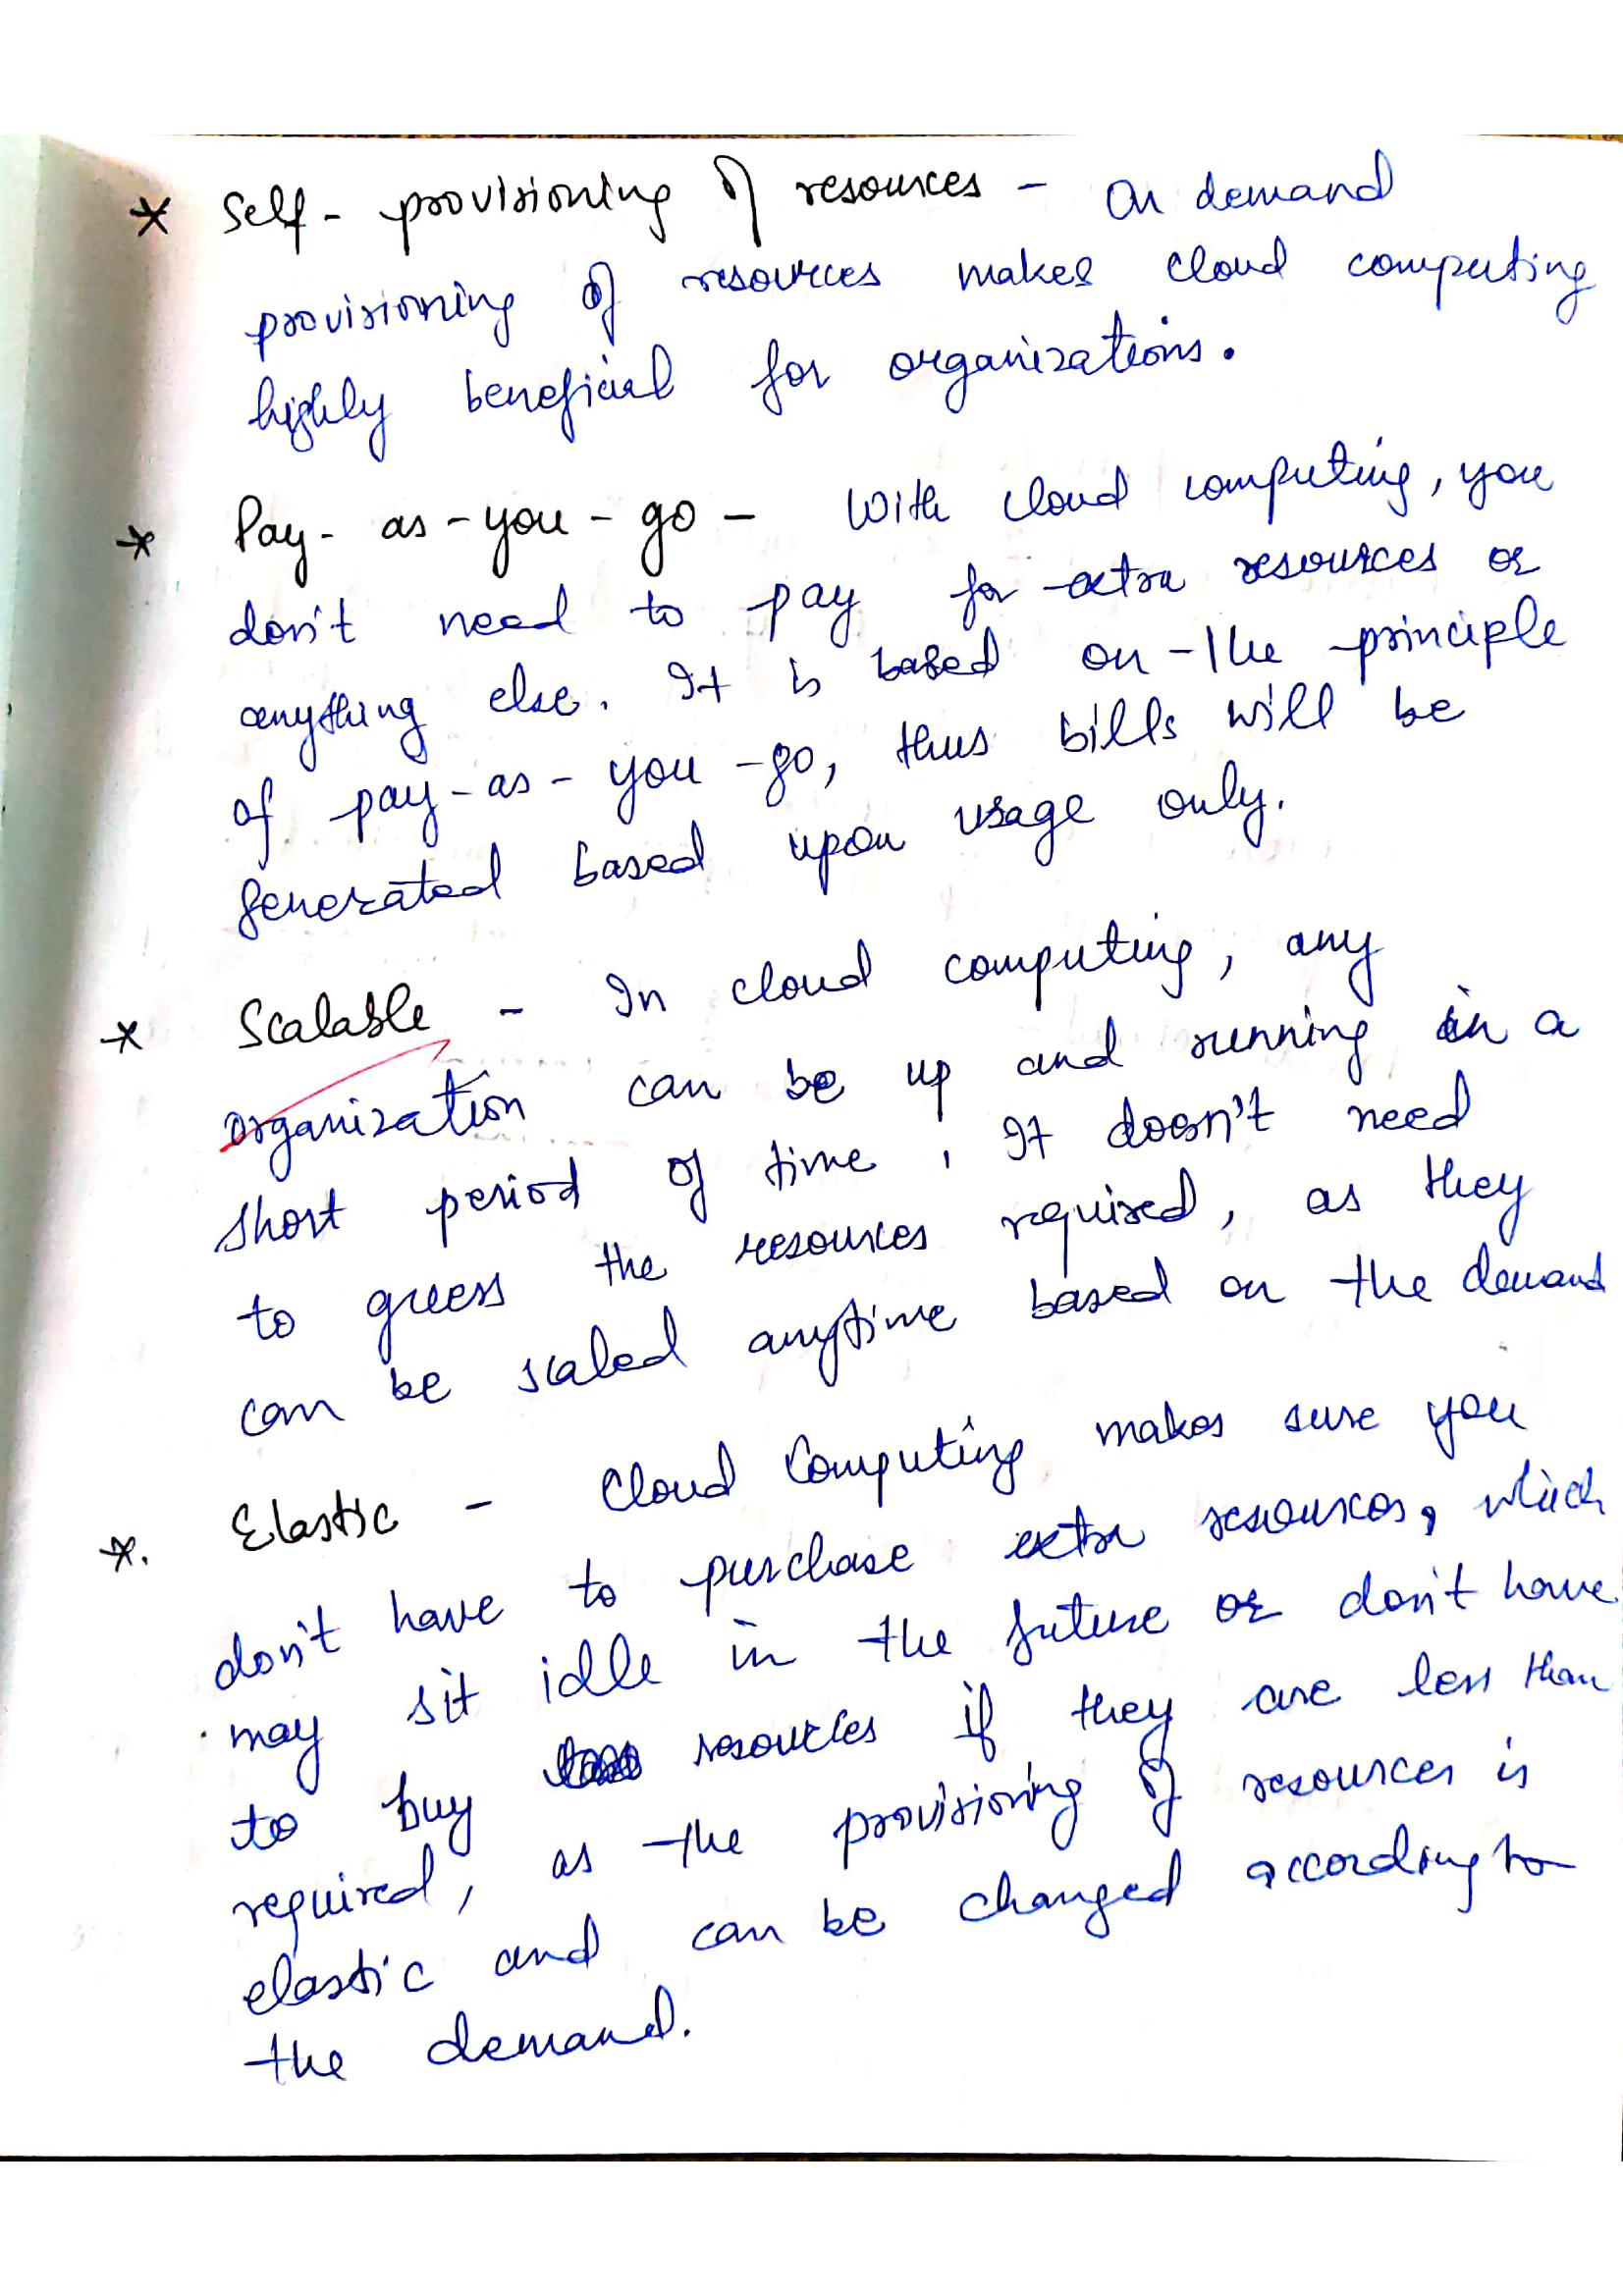 * Self - provisioning of resources - On demand
provisioning of resources makes cloud computing
highly beneficial for organizations.
* Pay - as - you - go - With cloud computing, you
don't need to pay for extra resources or
anything else. It is based on the principle
of pay - as - you - go, thus bills will be
generated based upon usage only.
* Scalable - In cloud computing, any
organization can be up and running in a
short period of time, It doesn't need
to guess the resources required, as they
can be scaled anytime based on the demand
*. Elastic - Cloud Computing makes sure you
don't have to purchase extra resources, which
may sit idle in the future or don't have
to buy resources if they are less than
required, as the provisioning of resources is
elastic and can be changed according to
the demand.